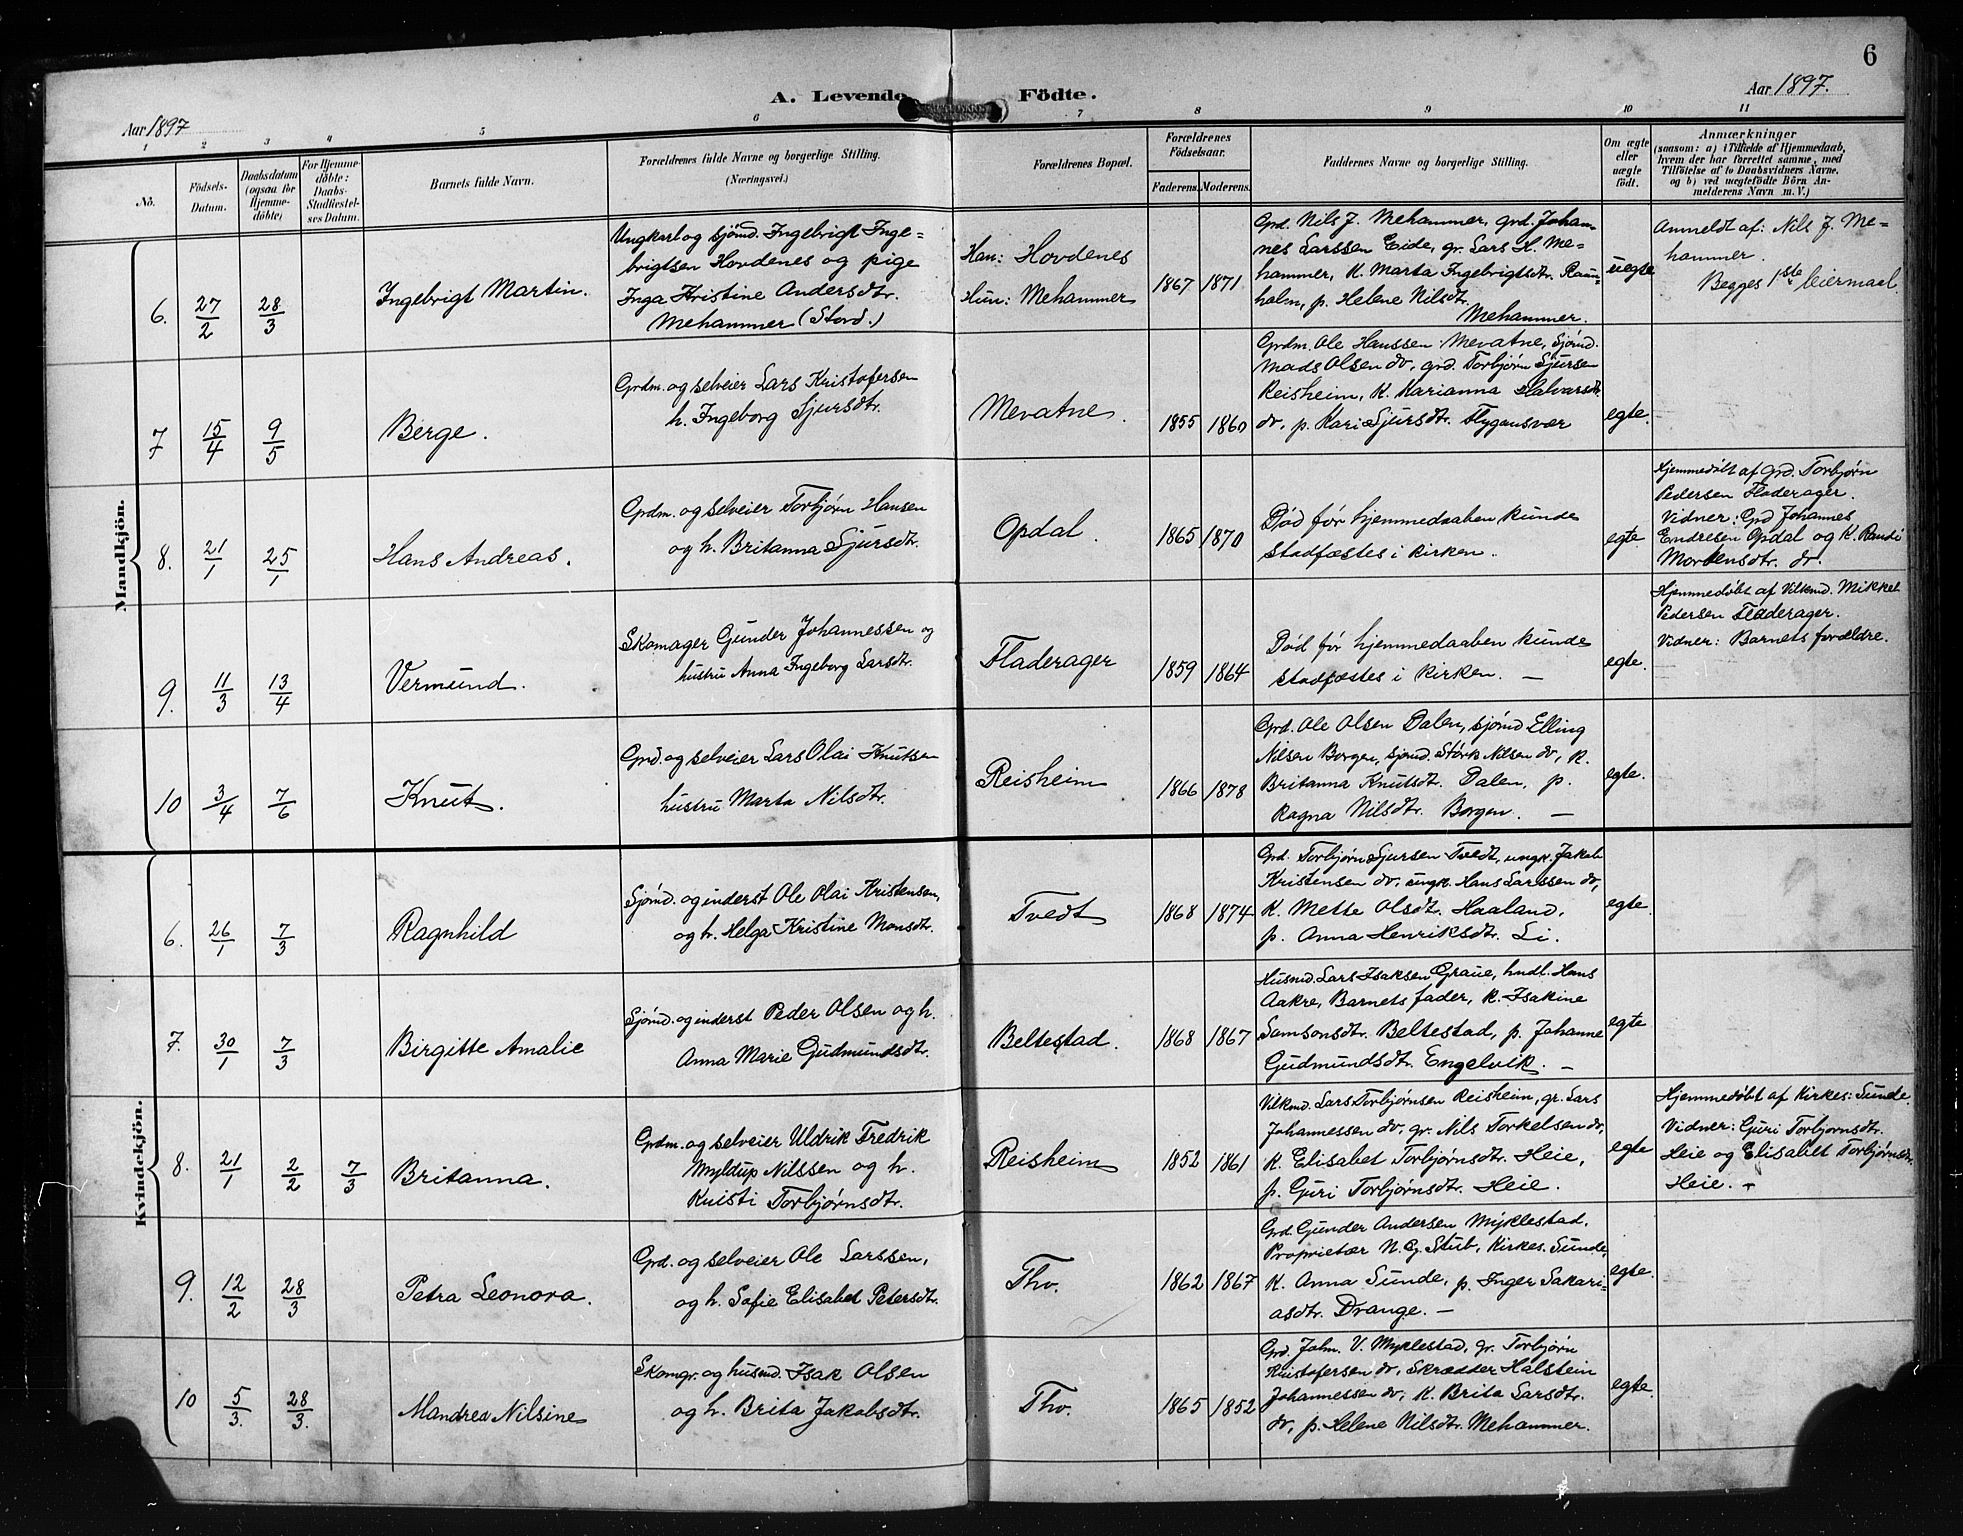 6
A. Levende Födte.
Aar 1897
Aar 1897.
1 2 3 4 5 6 7 8 9 10 11
No.
Födsels-
Datum.
Daabsdatum
(ogsaa for
Hjemme-
döbte)
For Hjemme-
döbte:
Daabs-
Stadfæstel-
ses Datum.
Barnets fulde Navn.
Forældrenes fulde Navne og borgerlige Stilling.
(Næringsvei.)
Forældrenes Bopæl.
Forældrenes
Födselsaar.
Faderens. Moderens.
Faddernes Navne og borgerlige Stilling.
Om ægte
eller
uægte
födt.
Anmærkninger
(saasom: a) i Tilfælde af Hjemmedaab,
hvem der har forrettet samme, med
Tilföielse af to Daabsvidners Navne,
og b) ved uægtefödte Börn An-
melderens Navn m. V.)
Mandkjön.
6. 27/2 28/3
Ingebrigt Martin.
Ungkarl og sjømd. Ingebrigt Inge=
brigtsen Hovdenes og pige
Inga Kristine Andersdtr.
Mehammer (Stord.)
Han: Hovdenes
Hun: Mehammer
1867 1871
Grd. Nils J. Mehammer, grd. Johan-
nes Larssen Eide, gr. Lars H. Me-
hammer, K. Marta Ingebrigtsdtr. Raun-
holm, p. Helene Nilsdtr.
Mehammer.
uegte
Anmeldt af: Nils J. Me=
hammer.
Begges 1ste leiermaal.
7 15/4 9/5
Berge.
Grdm. og selveier Lars Kristofersen
h. Ingeborg Sjursdtr.
Mevatne.
1855 1860
Grdm. Ole Hanssen Mevatne, Sjømd.
Mads Olsen do, grd. Torbjørn Sjursen
Reisheim, K. Marianna Halvarsdtr.
do, p. Kari Sjursdtr. Flygansvær
egte.
8. 21/1 25/1
Hans Andreas.
Grdm. og selveier Torbjørn Hansen
og h. Britanna Sjursdtr.
Opdal.
1865 1870
Død før hjemmedaaben kunde
stadfæstes i kirken.
egte.
Hjemmedøbt af Grd. Torbjørn
Pedersen Fladerager.
Vidner: Grd Johannes
Endresen Opdal og K. Randi
Mortensdtr. do.
9. 11/3 13/4
Vermund.
Skomager Gunder Johannessen og
hustru Anna Ingeborg Larsdtr.
Fladerager
1859 1864
Død før hjemmedaaben kunde
stadfæstes i kirken. —
egte.
Hjemmedøbt af Vilkmd. Mikkel
Pedersen Fladerager.
Vidner: Barnets forældre.
10 3/4 7/6
Knut.
Grd. og selveier Lars Olai Knutsen
hustru Marta Nilsdtr.
Reisheim
1866 1878
Grd. Ole Olsen Dalen, sjømd Elling
Nilsen Borgen, sjømd. Størk Nilsen do, K.
Britanna Knutsdtr. Dalen, p.
Ragna Nilsdtr. Borgen. —
egte.
Kvindekjön.
6. 26/1 7/3
Ragnhild
Sjømd. og inderst Ole Olai Kristensen,
og h. Helga Kristine Monsdtr.
Tvedt
1868 1874
Grd. Torbjørn Sjursen Tvedt, ungk. Jakob
Kristensen do, ungk. Hans Larssen do,
K. Mette Olsdtr. Haaland,
p. Anna Henriksdtr. Li.
egte.
7. 30/1 7/3
Birgitte Amalie
Sjømd. og inderst Peder Olsen og h.
Anna Marie Gudmundsdtr.
Beltestad.
1868 1867
Husmd. Lars Isaksen Graue, hndl. Hans
Aakre, Barnets fader, K. Isakine
Samsonsdtr. Beltestad, p. Johanne
Gudmundsdtr. Engelvik. —
egte
8. 21/1 2/2 7/3
Britanna.
Grdm. og selveier Uldrik Fredrik
Myldup Nilssen og h.
Kristi Torbjørnsdtr.
Reisheim
1852 1861
Vilkmd. Lars Torbjørnsen Reisheim, gr. Lars
Johannessen do, gr. Nils Torkelsen do,
K. Elisabet Torbjørnsdtr. Heie,
p. Guri Torbjørnsdtr. Heie.
egte
Hjemmedøbt af Kirkes: Sunde.
Vidner: Guri Torbjørnsdtr.
Heie og Elisabet Torbjørnsdtr.
Heie. —
9. 12/2 28/3
Petra Leonora.
Grd. og selveier Ole Larssen,
og h. Sofie Elisabet Petersdtr.
Tho.
1862 1867
Grd. Gunder Andersen Myklestad,
Proprietær N. Eg. Stub, Kirkes. Sunde,
K. Anna Sunde, p. Inger Sakari-
asdtr. Drange. —
egte.
10 5/3. 28/3.
Mandrea Nilsine
Skomgr. og husmd. Isak Olsen
og h. Brita Jakobsdtr.
Tho.
1865 1852
Grd. Johm. V. Myklestad, gr. Torbjørn
Kristofersen do, Skrædder Halstein
Johannessen do, K. Brita Larsdtr.
do, p. Helene Nilsdtr. Mehammer.
egte.